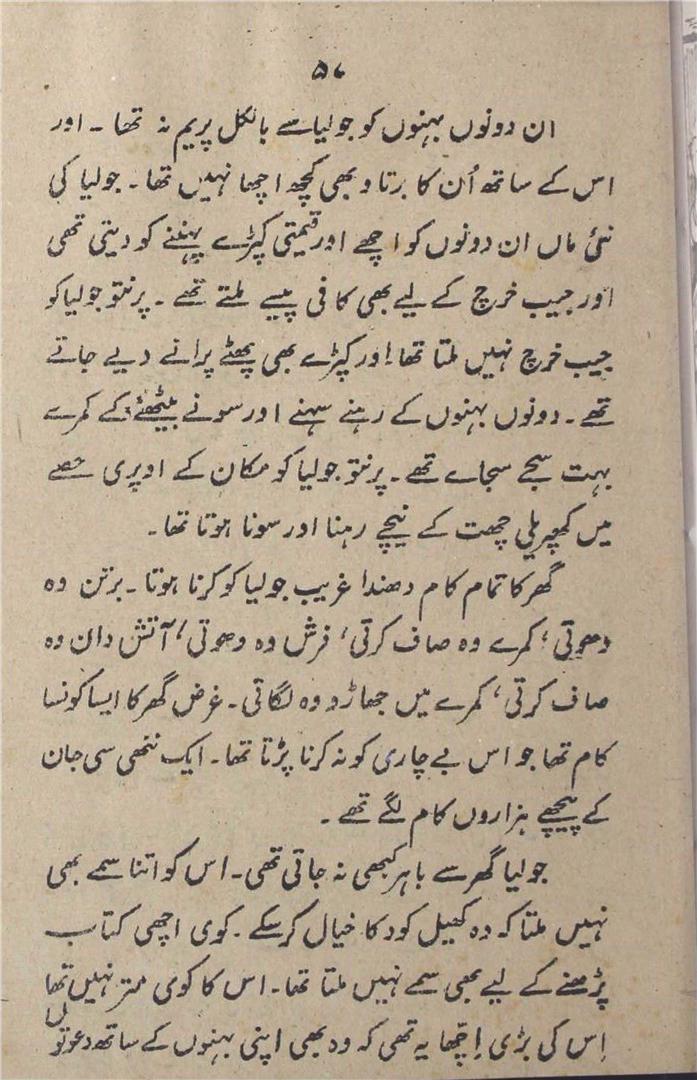 ۵۷
ان دونوں بہنوں کو جولیا سے بالکل پریم نہ تھا ۔ اور
اس کے ساتھ اُن کا برتاو بھی کچھ اچھا نہیں تھا ۔ جولیا کی
نئی ماں ان دونوں کو اچھے اور قیمتی کپڑے پہننے کو دیتی تھی
اور جیب خرچ کے لیے بھی کافی پیسے ملتے تھے ۔ پرنتو جولیا کو
جیب خرچ نہیں ملتا تھا اور کپڑے بھی پھٹے پرانے دیے جاتے
تھے ۔ دونوں بہنوں کے رہنے سہنے اور سونے بیٹھنے کے کمرے
بہت سجے سجاے تھے ۔ پرنتو جولیا کو مکان کے اوپری حصے
میں کھپریلی چھت کے نیچے رہنا اور سونا ہوتا تھا ۔
گھر کا تمام کام دھندا غریب جولیا کو کرنا ہوتا ۔ برتن وہ
دھوتی، کمرے وہ صاف کرتی، فرش وہ دھوتی، آتش دان وہ
صاف کرتی، کمرے میں جھاڑو وہ لگاتی ۔ غرض گھر کا ایسا کونسا
کام تھا جو اس بے چاری کو نہ کرنا پڑتا تھا ۔ ایک ننھی سی جان
کے پیچھے ہزاروں کام لگے تھے ۔
جولیا گھر سے باہر کبھی نہ جاتی تھی ۔ اس کو اتنا سمے بھی
نہیں ملتا کہ وہ کھیل کود کا خیال کر سکے ۔ کوی اچھی کتاب
پڑھنے کے لیے بھی سمے نہیں ملتا تھا ۔ اس کا کوی متر نہیں تھا
اِس کی بڑی اِچّھا یہ تھی کہ وہ بھی اپنی بہنوں کے ساتھ دعوتوں